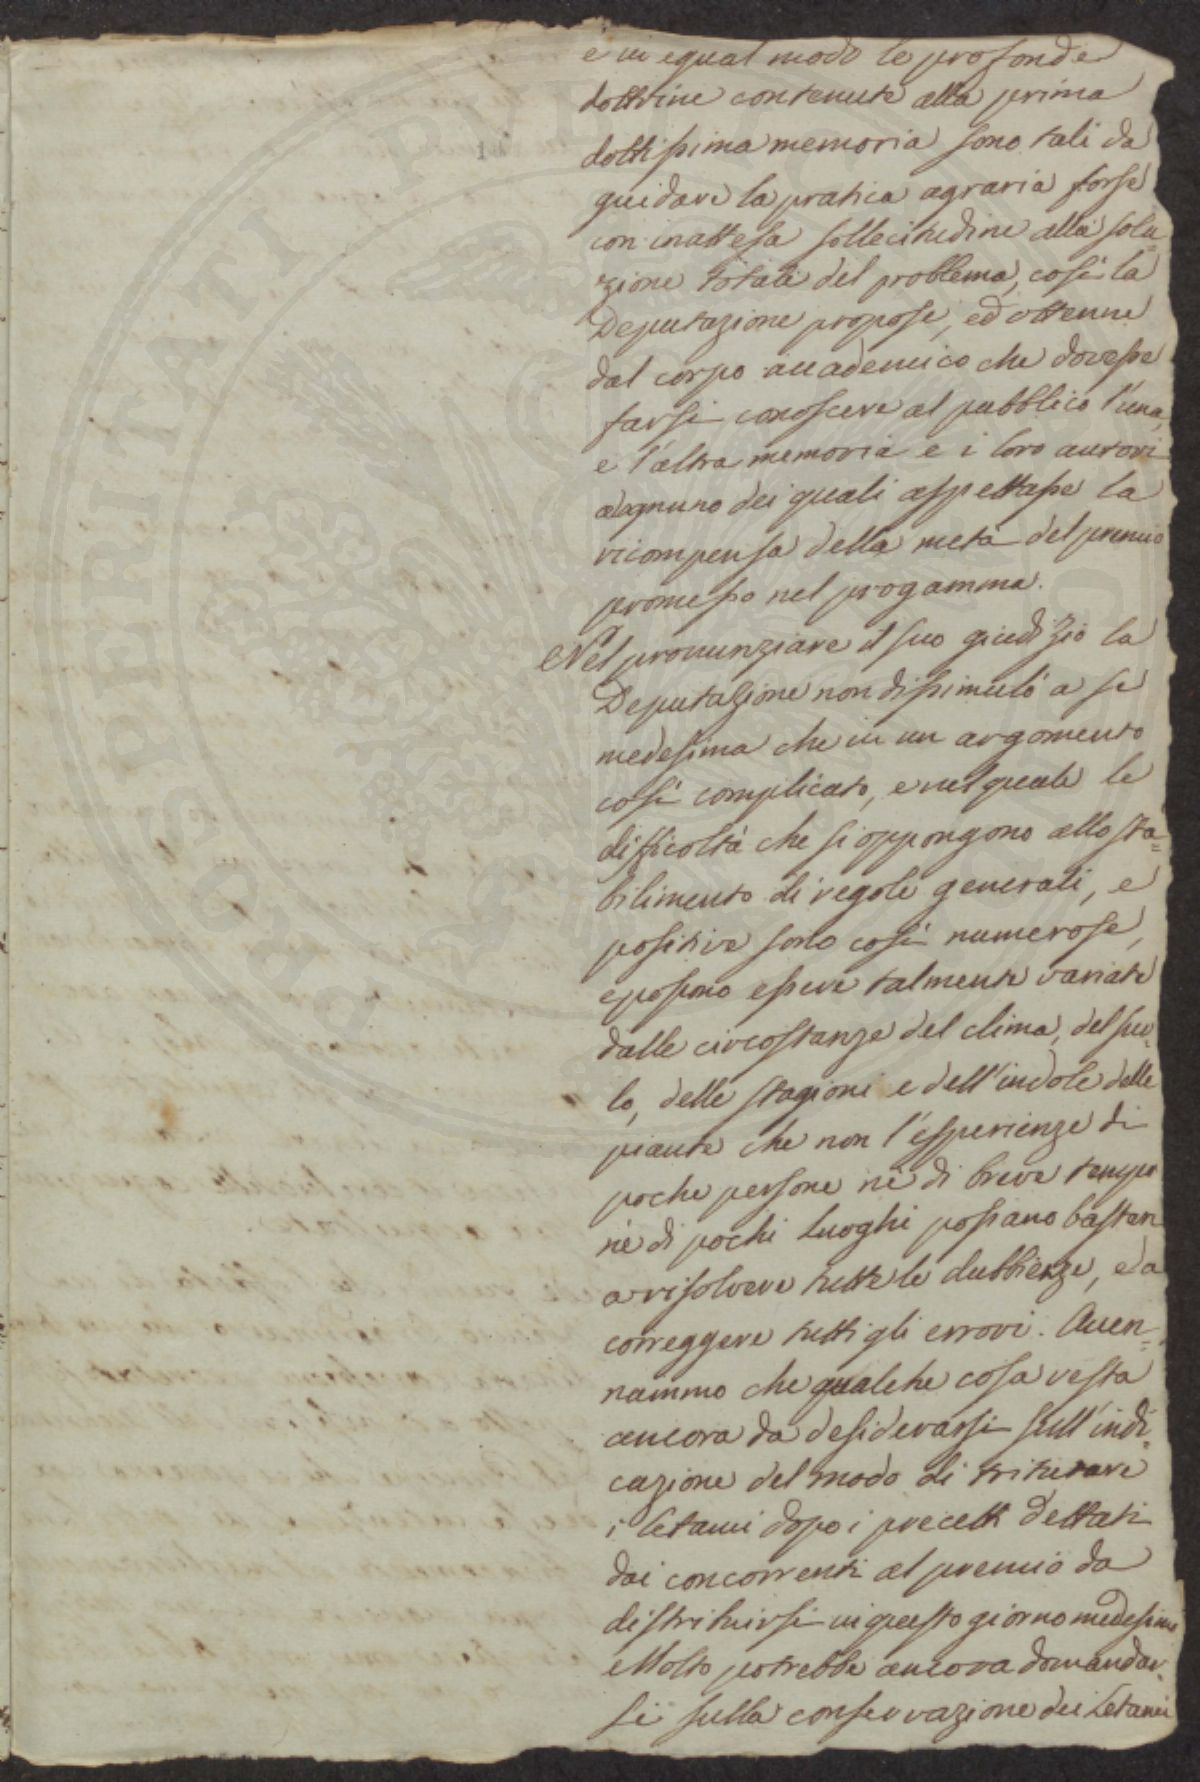 e in egual modo le profonde
dottrine contenute alla prima
dottissima memoria sono tali da
guidare la pratica agraria forse
con inattesa sollecitudine alla solu=
zione totale del problema, così la
Deputazione propose, ed ottenne
dal corpo accademico che dovesse
farsi conoscere al pubblico l'una,
e l'altra memoria e i loro autori
adognuno dei quali aspettasse la
ricompensa della metà del premio
promesso nel progamma.
Nel pronunziare il suo giudizio la
Deputazione non dissimulò a se
medesima che in un argomento
così complicato, e nel quale le
difficoltà che si oppongono allo sta=
bilimento di regole generali, e
positive sono così numerose,
e possono essere talmente variate
dalle circostanze del clima, del suo=
lo, delle stagioni e dell'indole delle
piante che non l'esperienze di
poche persone nè di breve tempo
nè di pochi luoghi possano bastar
a risolvere tutte le dubbienze, ed a
correggere tutti gli errori. Accen=
nammo che qualche cosa resta
ancora da desiderarsi sull'indi=
cazione del modo di triturare
i letami dopo i precetti dettati
dai concorrenti al premio da
distribuirsi in questo giorno medesimo
Molto potrebbe ancora domandar=
si sulla conservazione dei Letami
PUBLIC
SPIRITATI